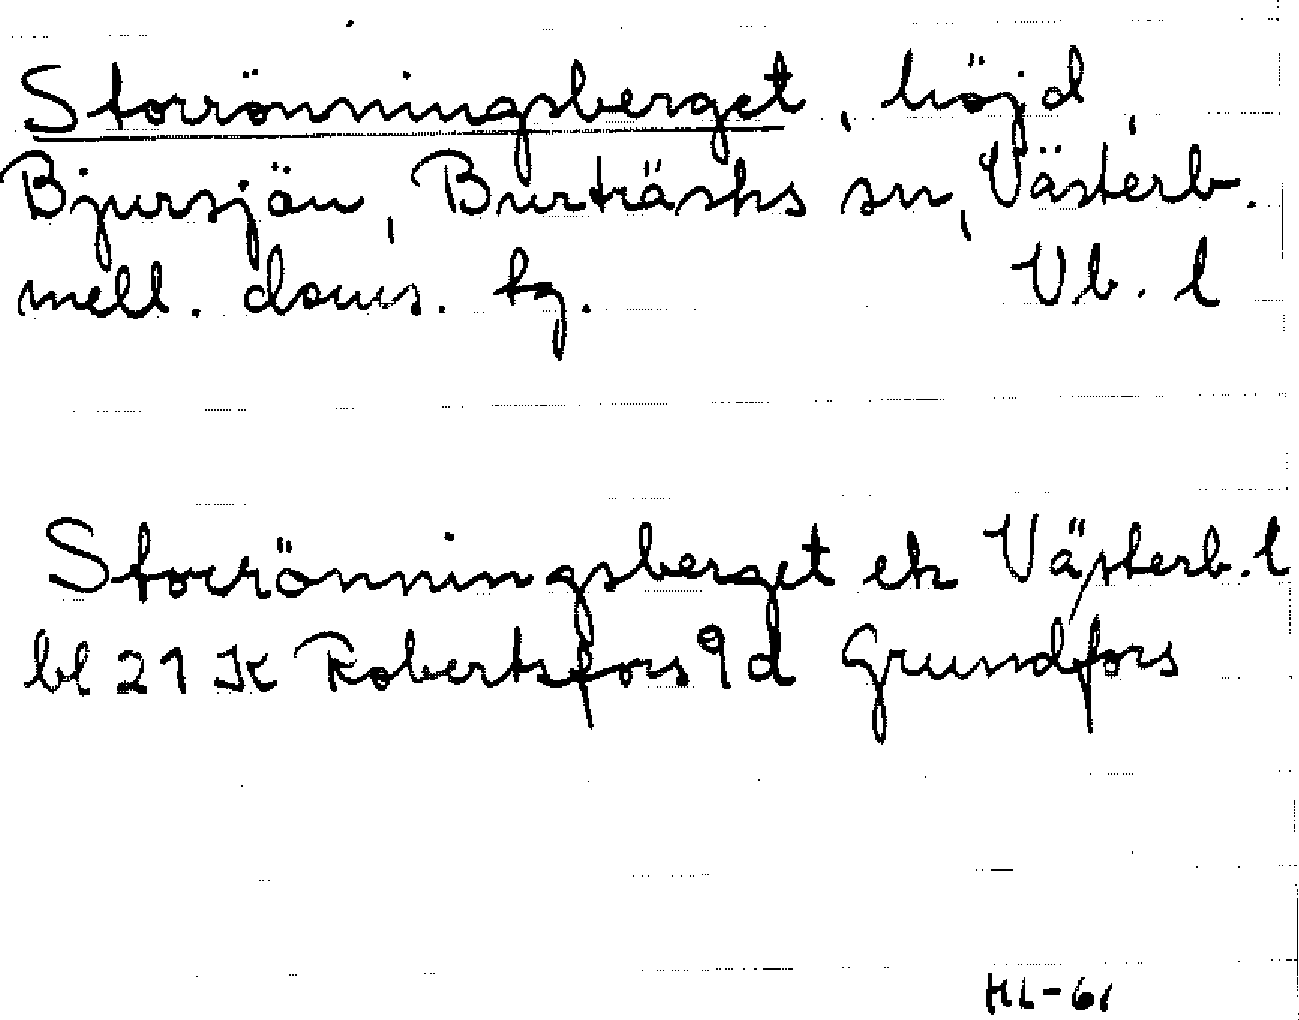 Storrönningsberget, höjd,
Bjursjön, Burträsks sn, Västerb.
mell. doms. tg. Vb. l
Storrönningsberget ek Västerb. l
bl 21 K Robertsfors 9d Grundfors
HL-61